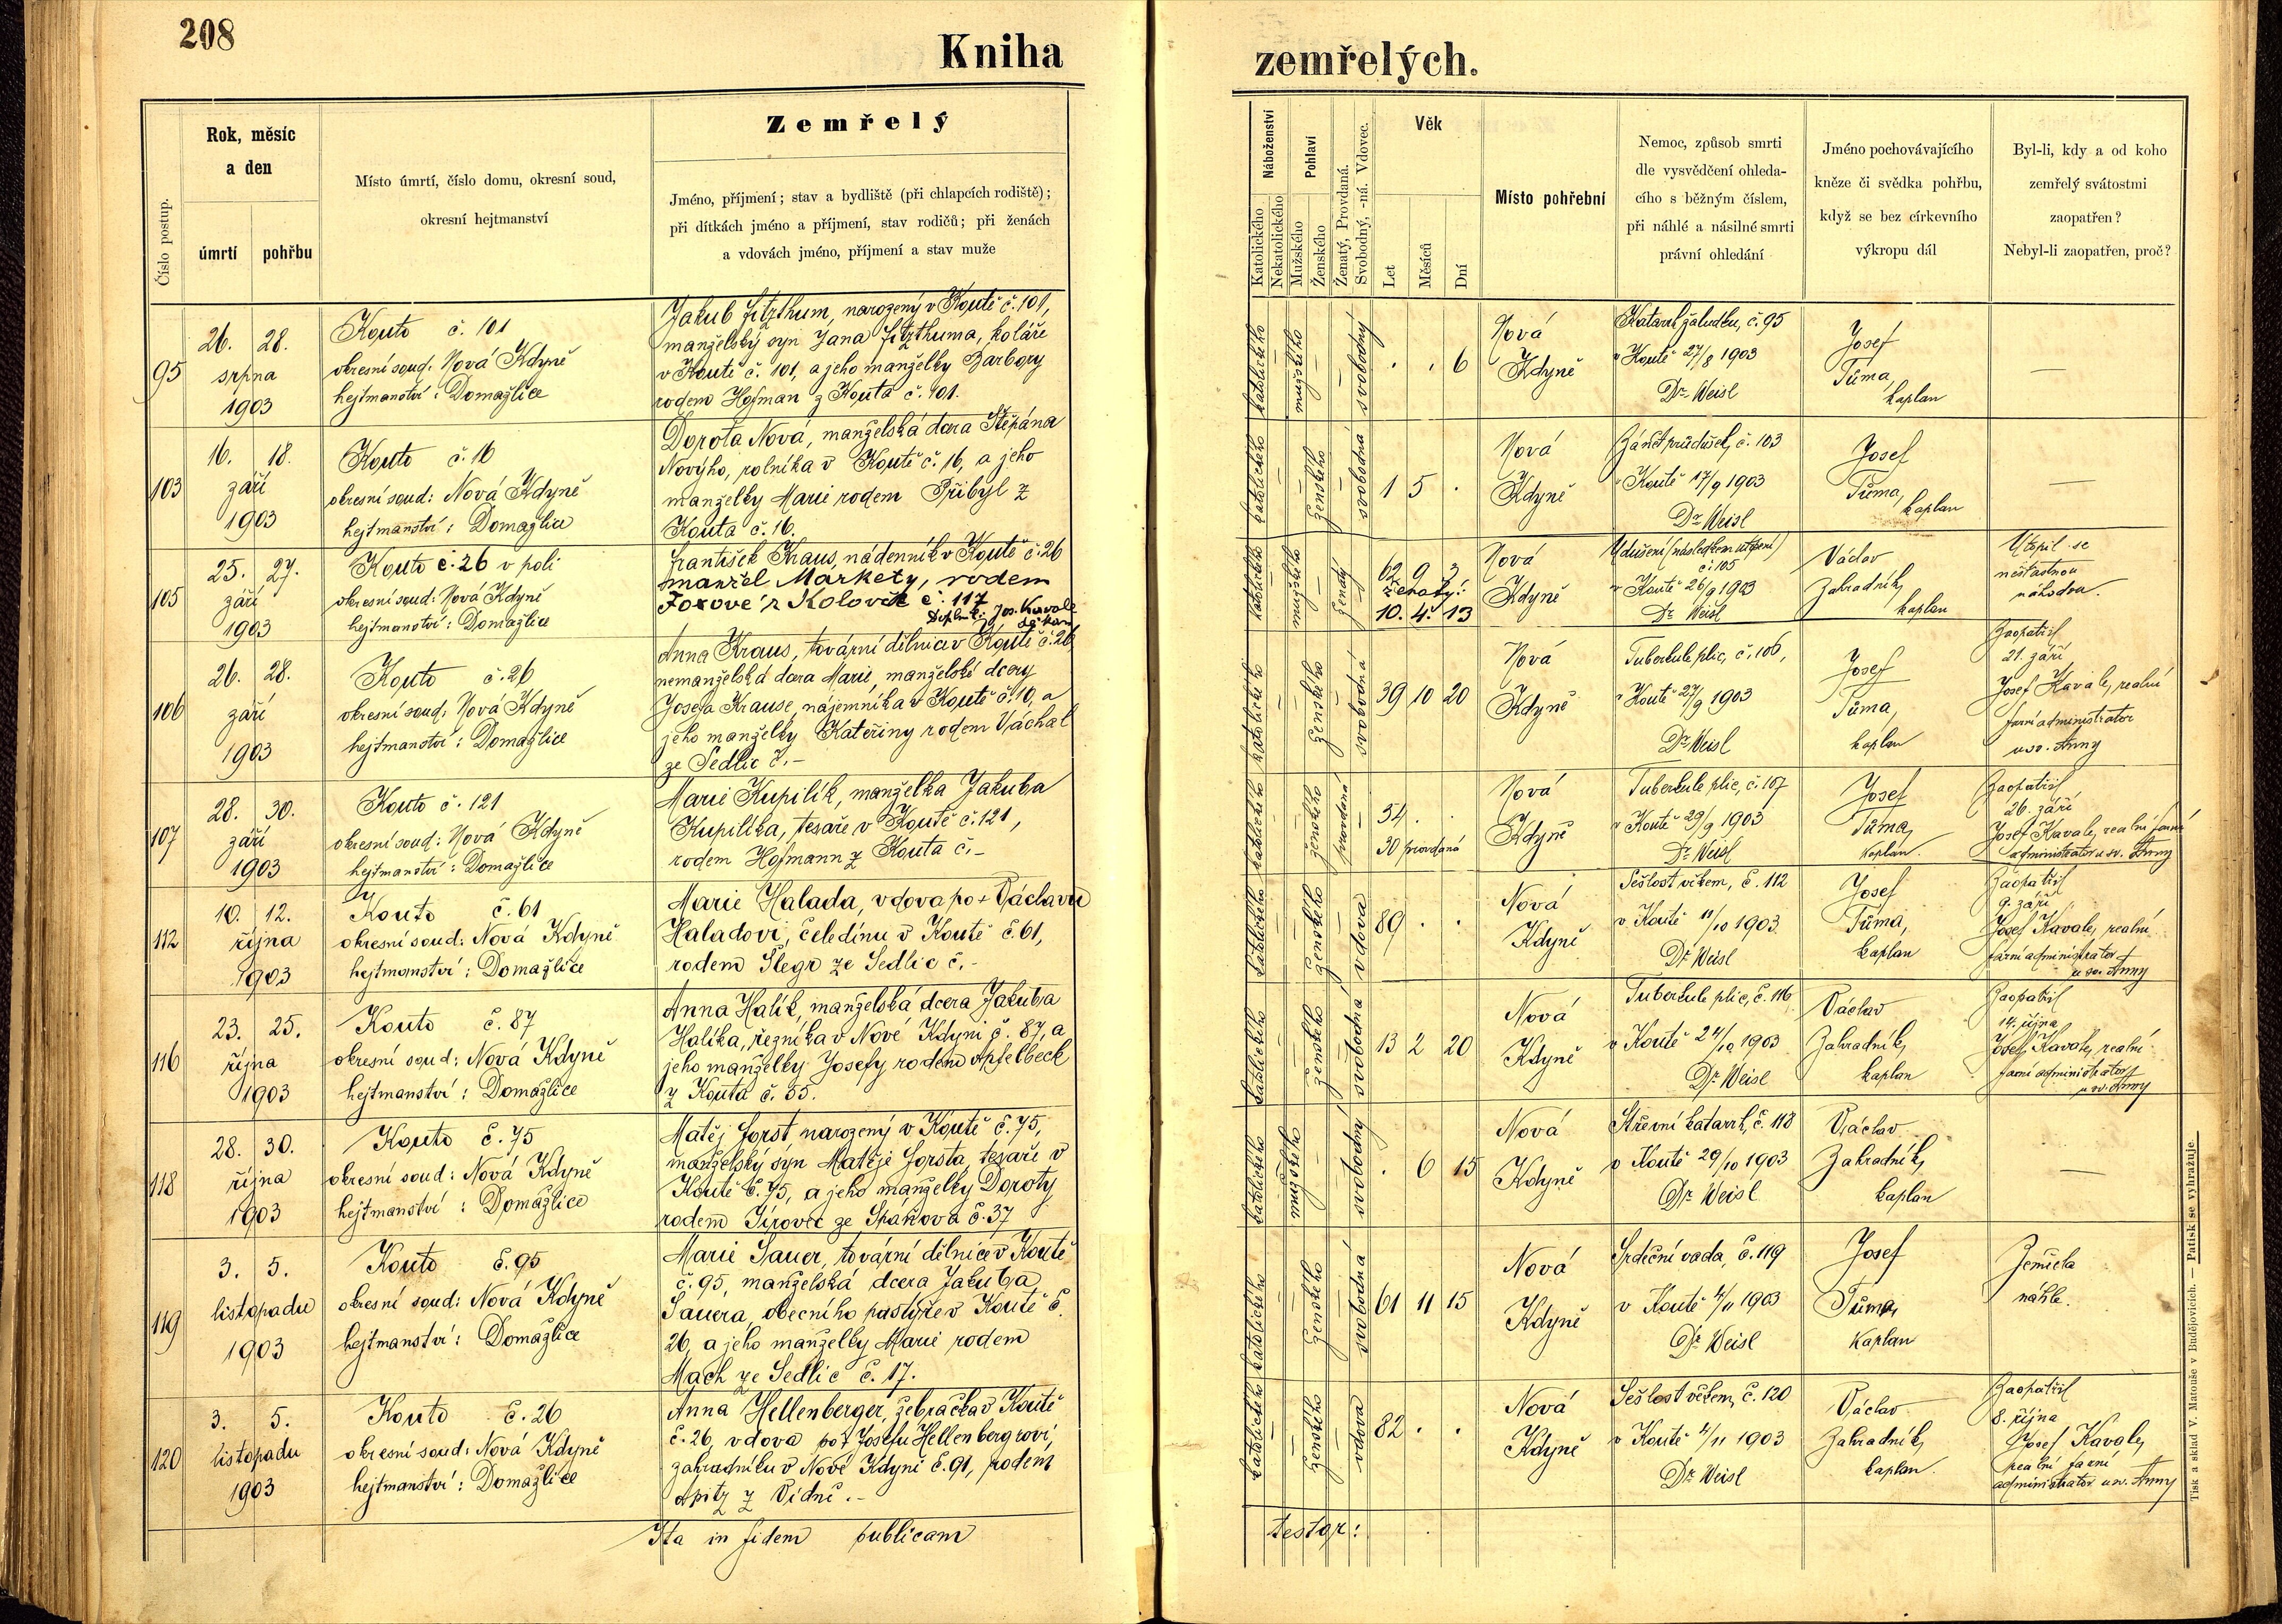 208
Kniha
zemřelých.
Číslo postup.
Rok, měsíc
a den
úmrtí
pohřbu
Místo úmrtí, číslo domu, okresní soud,
okresní hejtmanství
Zemřelý
Jméno, příjmení; stav a bydliště (při chlapcích rodiště);
při dítkách jméno a příjmení, stav rodičů; při ženách
a vdovách jméno, příjmení a stav muže
Náboženství
Katolického
Nekatolického
Pohlaví
Mužského
Ženského
Ženatý, Provdaná.
Svobodný, -ná. Vdovec.
Věk
Let
Měsíců
Dní
Místo pohřební
Nemoc, způsob smrti
dle vysvědčení ohleda-
cího s běžným číslem,
při náhlé a násilné smrti
právní ohledání
Jméno pochovávajícího
kněze či svědka pohřbu,
když se bez církevního
výkropu dál
Byl-li, kdy a od koho
zemřelý svátostmi
zaopatřen?
Nebyl-li zaopatřen, proč?
95
26. 28.
srpna
1903
Kouto č. 101
okresní soud: Nová Kdyně
hejtmanství: Domažlice
Jakub Fitzthum, narozený v Koutě č. 101,
manželský syn Jana Fitzthuma, koláře
v Koutě č. 101, a jeho manželky Barbory
rodem Hofman z Kouta č. 101.
katolického
mužského
svobodný
. . 6
Nová
Kdyně
Katarrh žaludku, č. 95
v Koutě 27/8 1903
Dr. Weisl
Josef
Tůma,
kaplan
—
103
16. 18.
září
1903
Kouto č. 16
okresní soud: Nová Kdyně
hejtmanství: Domažlice
Dorota Nová, manželská dcera Štěpána
Novýho, rolníka v Koutě č. 16, a jeho
manželky Marie rodem Přibyl z
Kouta č. 16.
katolického
ženského
svobodná
1 5 .
Nová
Kdyně
Zánět průdušek, č. 103
v Koutě 17/9 1903
Dr. Weisl
Josef
Tůma,
kaplan
—
105
25. 27.
září
1903
Kouto č. 26 v poli
okresní soud: Nová Kdyně
hejtmanství: Domažlice
František Kraus, nádenník v Koutě č. 26
manžel Markety, rodem
Foxové z Kolovče č. 117
Doplnil: Jos. Kavale
děkan
katolického
mužského
ženatý
62 9 3
Ženatý:
10. 4. 13
Nová
Kdyně
Udušení (následkem utopení)
č. 105
v Koutě 26/9 1903
Dr. Weisl
Václav
Zahradník,
kaplan
Utopil se
nešťastnou
náhodou.
106
26. 28.
září
1903
Kouto č. 26
okresní soud: Nová Kdyně
hejtmanství: Domažlice
Anna Kraus, tovární dělnice v Koutě č. 26,
nemanželská dcera Marie, manželské dcery
Josefa Krause, nájemníka v Koutě č. 10, a
jeho manželky Kateřiny rodem Váchal
ze Sedlic č. –
katolického
ženského
svobodná
39 10 20
Nová
Kdyně
Tuberkule plic, č. 106,
v Koutě 27/9 1903
Dr. Weisl
Josef
Tůma,
kaplan
Zaopatřil
21. září
Josef Kavale, realní
farní administrator
u sv. Anny
107
28. 30.
září
1903
Kouto č. 121
okresní soud: Nová Kdyně
hejtmanství: Domažlice
Marie Kupilík, manželka Jakuba
Kupilíka, tesaře v Koutě č. 121,
rodem Hofmann z Kouta č. –
katolického
ženského
provdaná
54 . .
30 provdaná
Nová
Kdyně
Tuberkule plic, č. 107
v Koutě 29/9 1903
Dr. Weisl
Josef
Tůma,
kaplan.
Zaopatřil
26. září
Josef Kavale, realní farní
administrator u sv. Anny
112
10. 12.
října
1903
Kouto č. 61
okresní soud: Nová Kdyně
hejtmanství: Domažlice
Marie Halada, vdova po + Václavu
Haladovi, čeledínu v Koutě č. 61,
rodem Šlegr ze Sedlic č. –
katolického
ženského
vdova
89 . .
Nová
Kdyně
Sešlost věkem, č. 112
v Koutě 11/10 1903
Dr. Weisl
Josef
Tůma,
kaplan
Zaopatřil
9. září
Josef Kavale, realní
farní administrator
u sv. Anny
116
23. 25.
října
1903
Kouto č. 87
okresní soud: Nová Kdyně
hejtmanství: Domažlice
Anna Halík, manželská dcera Jakuba
Halíka, řezníka v Nové Kdyni č. 87, a
jeho manželky Josefy rodem Apfelbeck
z Kouta č. 55.
katolického
ženského
svobodná
13 2 20
Nová
Kdyně
Tuberkule plic, č. 116
v Koutě 24/10 1903
Dr. Weisl
Václav
Zahradník,
kaplan
Zaopatřil
14. října
Josef Kavale, realní
farní administrator
u sv. Anny
118
28. 30.
října
1903
Kouto č. 75
okresní soud: Nová Kdyně
hejtmanství: Domažlice
Matěj Forst, narozený v Koutě č. 75,
manželský syn Matěje Forsta, tesaře v
Koutě č. 75, a jeho manželky Doroty
rodem Jírovec ze Spáňova č. 37
katolického
mužského
svobodný
. 6 15
Nová
Kdyně
Střevní katarrh, č. 118
v Koutě 29/10 1903
Dr. Weisl
Václav
Zahradník,
kaplan
—
119
3. 5.
listopadu
1903
Kouto č. 95
okresní soud: Nová Kdyně
hejtmanství: Domažlice
Marie Sauer, tovární dělnice v Koutě
č. 95, manželská dcera Jakuba
Sauera, obecního pastýře v Koutě č.
26, a jeho manželky Marie rodem
Mach ze Sedlic č. 17.
katolického
ženského
svobodná
61 11 15
Nová
Kdyně
Srdeční vada, č. 119
v Koutě 4/11 1903
Dr. Weisl
Josef
Tůma,
kaplan
Zemřela
náhle.
120
3. 5.
listopadu
1903
Kouto č. 26
okresní soud: Nová Kdyně
hejtmanství: Domažlice
Anna Hellenberger, žebračka v Koutě
č. 26, vdova po + Josefu Hellenbergrovi,
zahradníku v Nové Kdyni č. 91, rodem
Opitz z Vídně. –
katolického
ženského
vdova
82 . .
Nová
Kdyně
Sešlost věkem, č. 120
v Koutě 4/11 1903
Dr. Weisl
Václav
Zahradník,
kaplan.
Zaopatřil
8. října
Josef Kavale,
realní farní
administrator u sv. Anny
Ita in fidem publicam
testor:
Tisk a sklad V. Matouše v Budějovicích. — Patisk se vyhražuje.